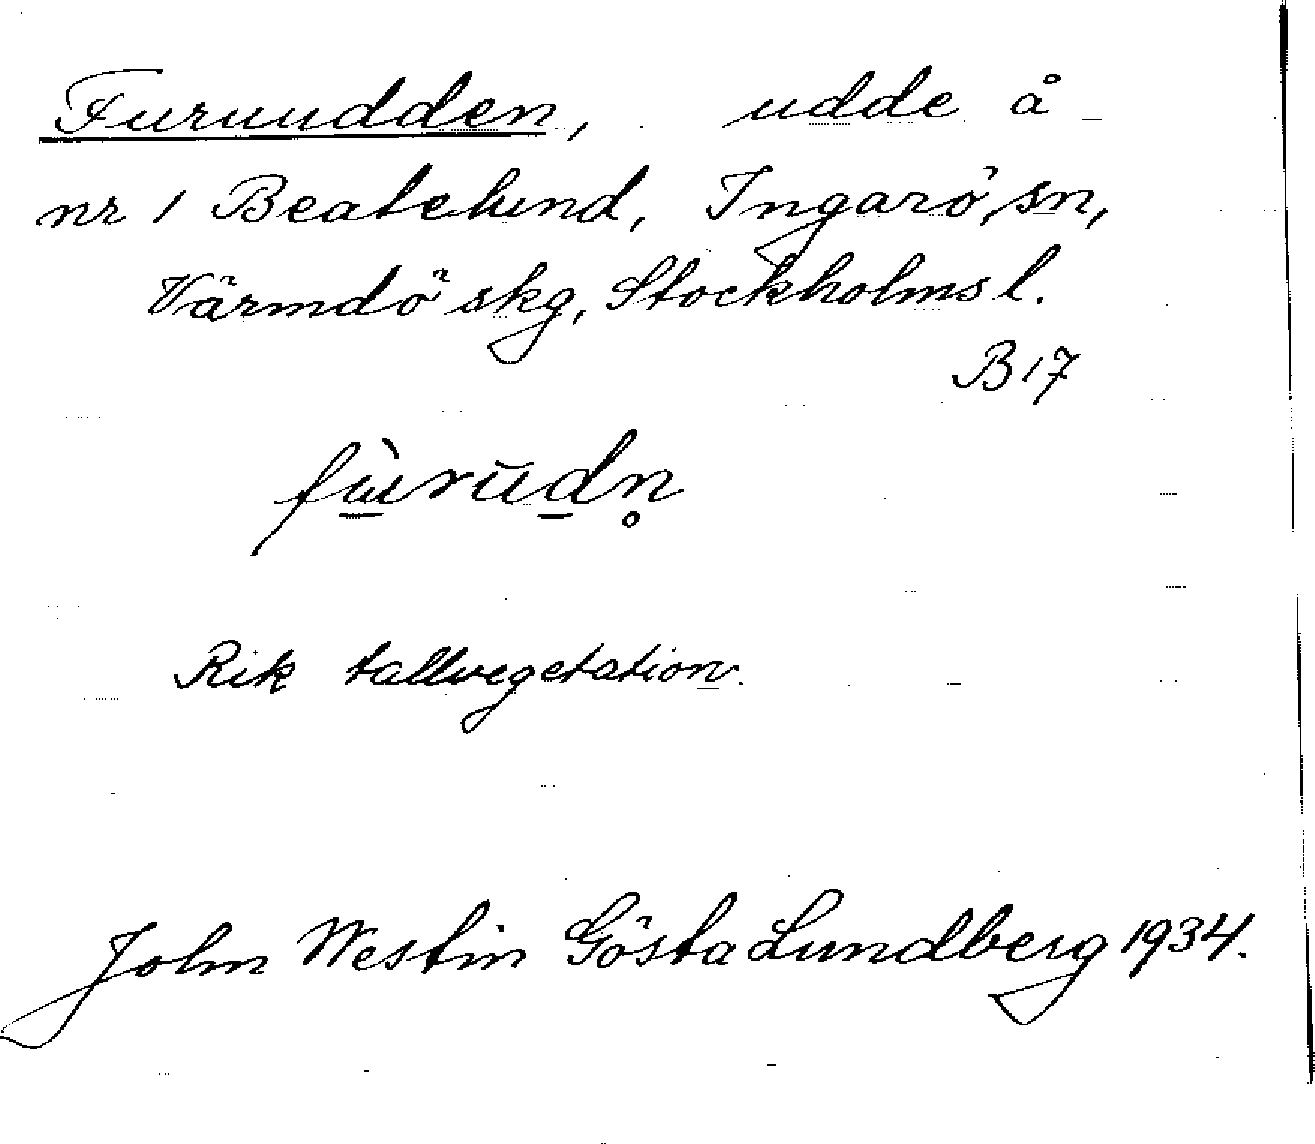 Furuudden, udde å
nr 1 Beatelund, Ingarö sn,
Värmdö skg, Stockholms l.
B 17
fùrūdn̥
Rik tallvegetation.
John Westin Gösta Lundberg 1934.